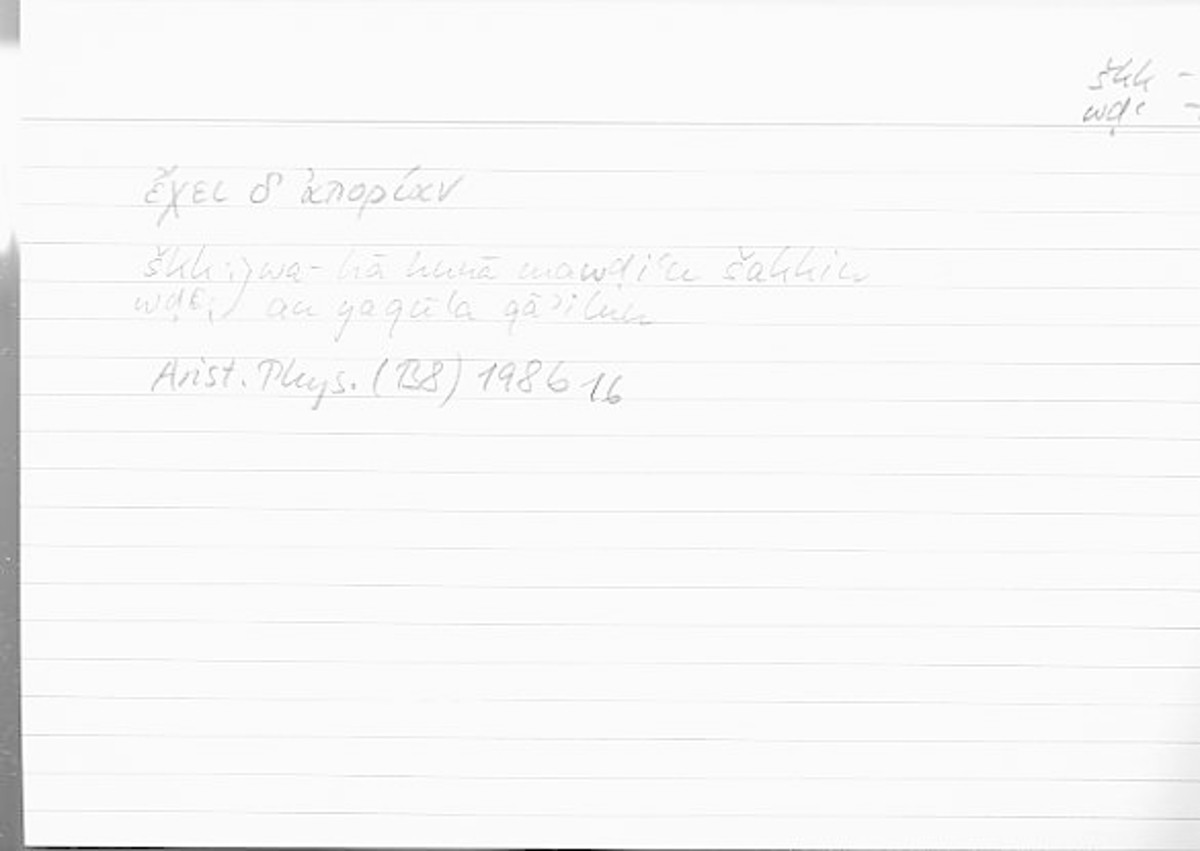 škk -
wḍʿ -
ἔχει δ' ἀπορίαν
škk:) wa-hā hunā mawḍiʿu šakkin
wḍʿ:) an yaqūla qāʾilun
Arist. Phys. (B8) 198b 16